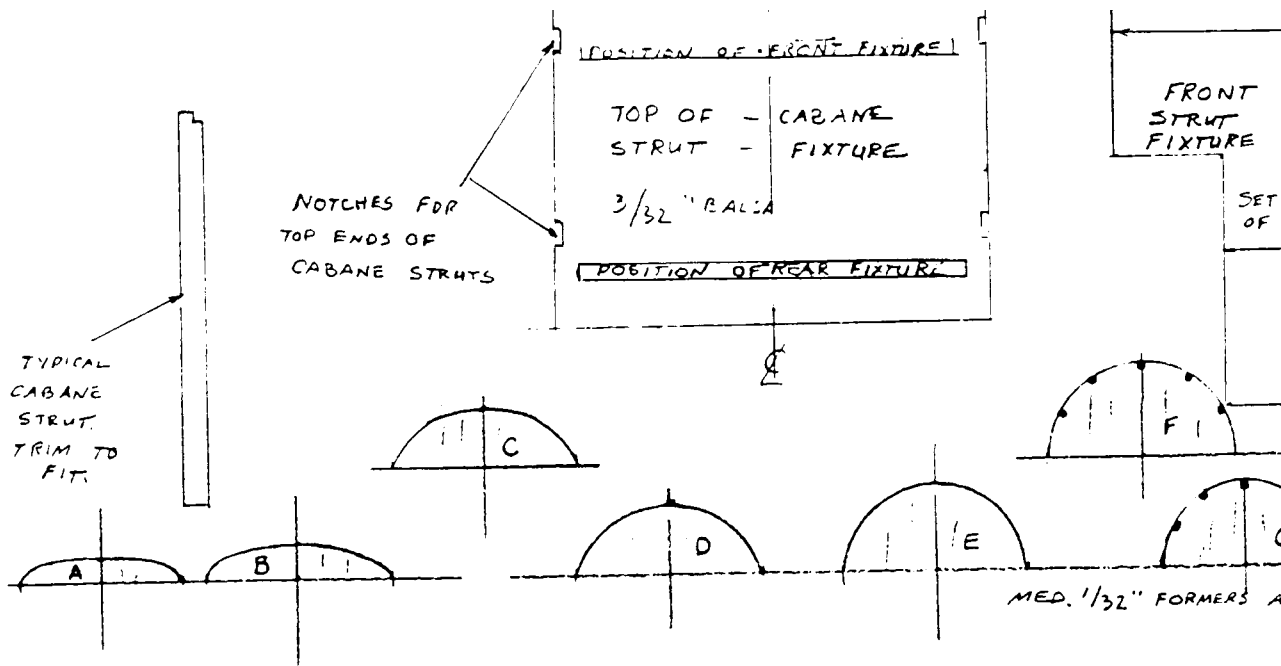 POSITION OF FRONT FIXTURE
TOP OF - CABANE
STRUT - FIXTURE
3/32" BALSA
POSITION OF REAR FIXTURE
FRONT
STRUT
FIXTURE
SET
OF
NOTCHES FOR
TOP ENDS OF
CABANE STRUTS
TYPICAL
CABANE
STRUT.
TRIM TO
FIT.
℄
A
B
C
D
E
F
MED. 1/32" FORMERS A